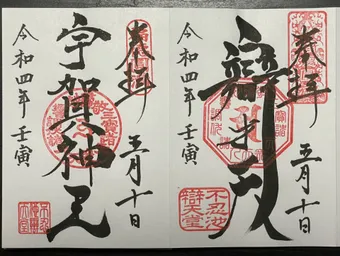 奉拝
五月十日
辯才天
不忍池
辯天堂
奉拝
五月十日
宇賀神王
令和四年 壬寅